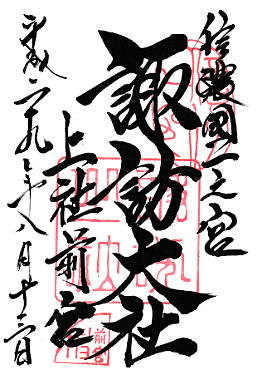 信濃國一之宮
諏訪大社
上社前宮
平成二十九年八月十二日